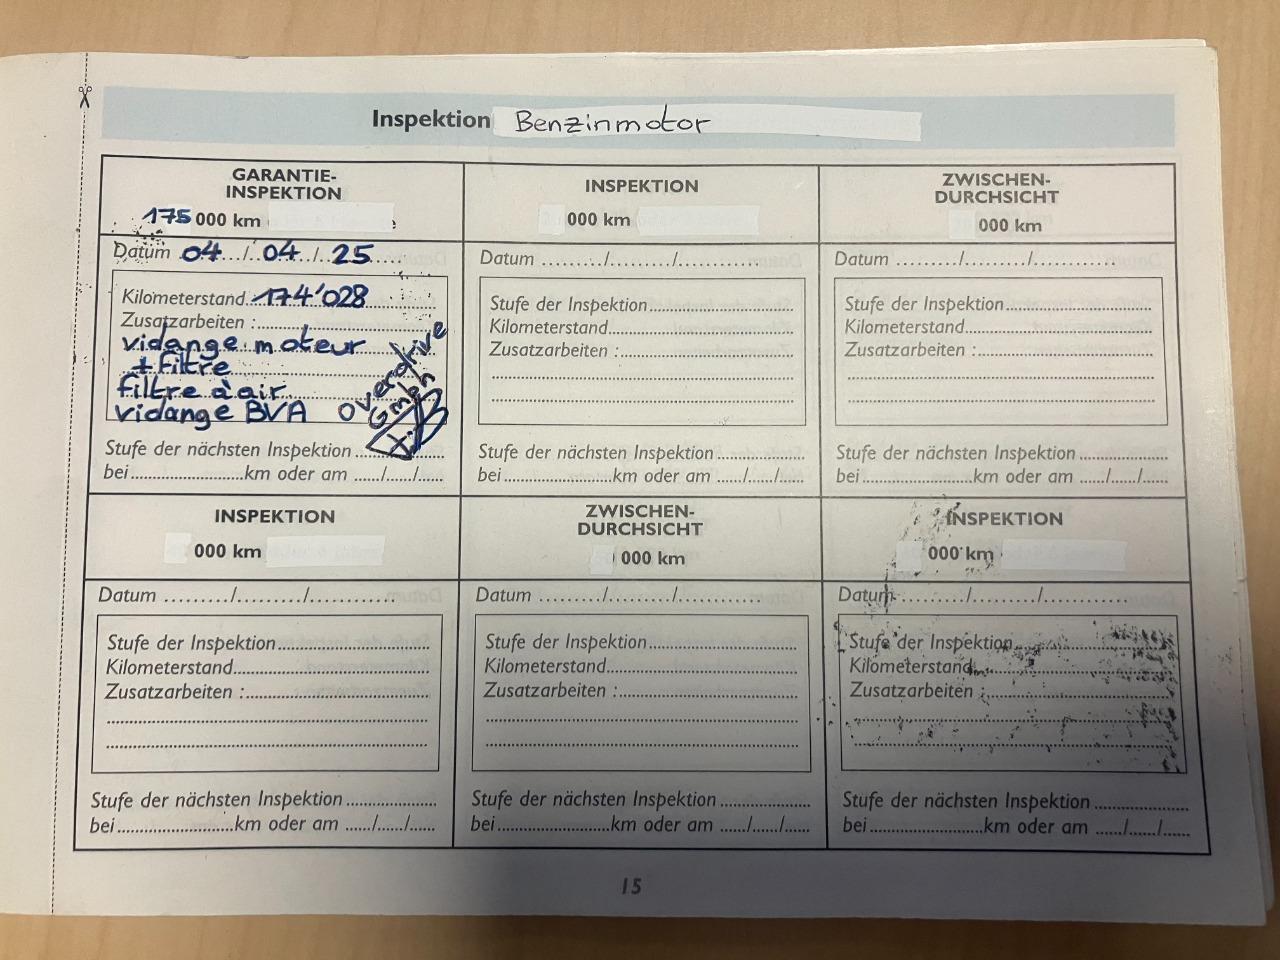 Inspektion Benzinmotor
GARANTIE-
INSPEKTION
175 000 km
Datum 04/04/25
Kilometerstand 174'028
Zusatzarbeiten :
vidange moteur
+ filtre
filtre à air
vidange BVA
overdrive
Gmbh
Stufe der nächsten Inspektion
bei km oder am / /
INSPEKTION
000 km
Datum / /
Stufe der Inspektion
Kilometerstand
Zusatzarbeiten :
Stufe der nächsten Inspektion
bei km oder am / /
ZWISCHEN-
DURCHSICHT
000 km
Datum / /
Stufe der Inspektion
Kilometerstand
Zusatzarbeiten :
Stufe der nächsten Inspektion
bei km oder am / /
INSPEKTION
000 km
Datum / /
Stufe der Inspektion
Kilometerstand
Zusatzarbeiten :
Stufe der nächsten Inspektion
bei km oder am / /
ZWISCHEN-
DURCHSICHT
000 km
Datum / /
Stufe der Inspektion
Kilometerstand
Zusatzarbeiten :
Stufe der nächsten Inspektion
bei km oder am / /
INSPEKTION
000 km
Datum / /
Stufe der Inspektion
Kilometerstand
Zusatzarbeiten :
Stufe der nächsten Inspektion
bei km oder am / /
15